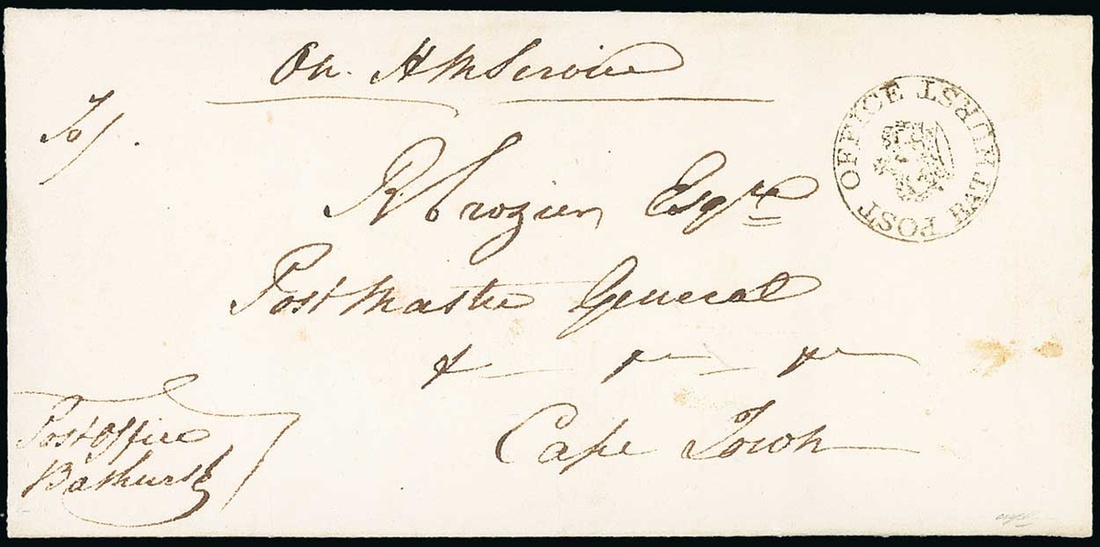 On H M Service
To/.
R Crozier Esqre
Post Master General
& — &c — &c
Cape Town
Post Office
Bathurst
POST OFFICE BATHURST